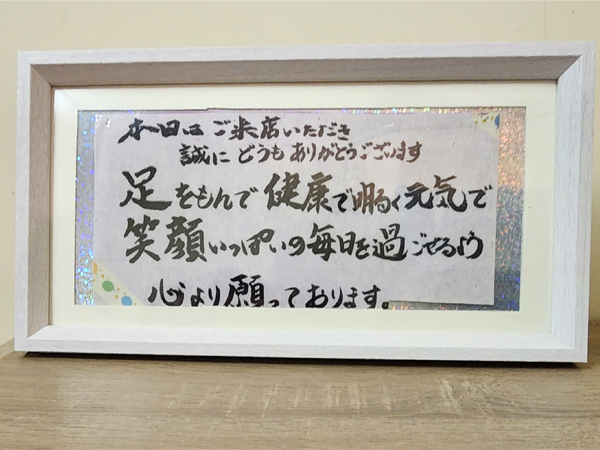 本日はご来店いただき
誠にどうもありがとうございます
足をもんで健康で明るく元気で
笑顔いっぱいの毎日を過ごせるよう
心より願っております。